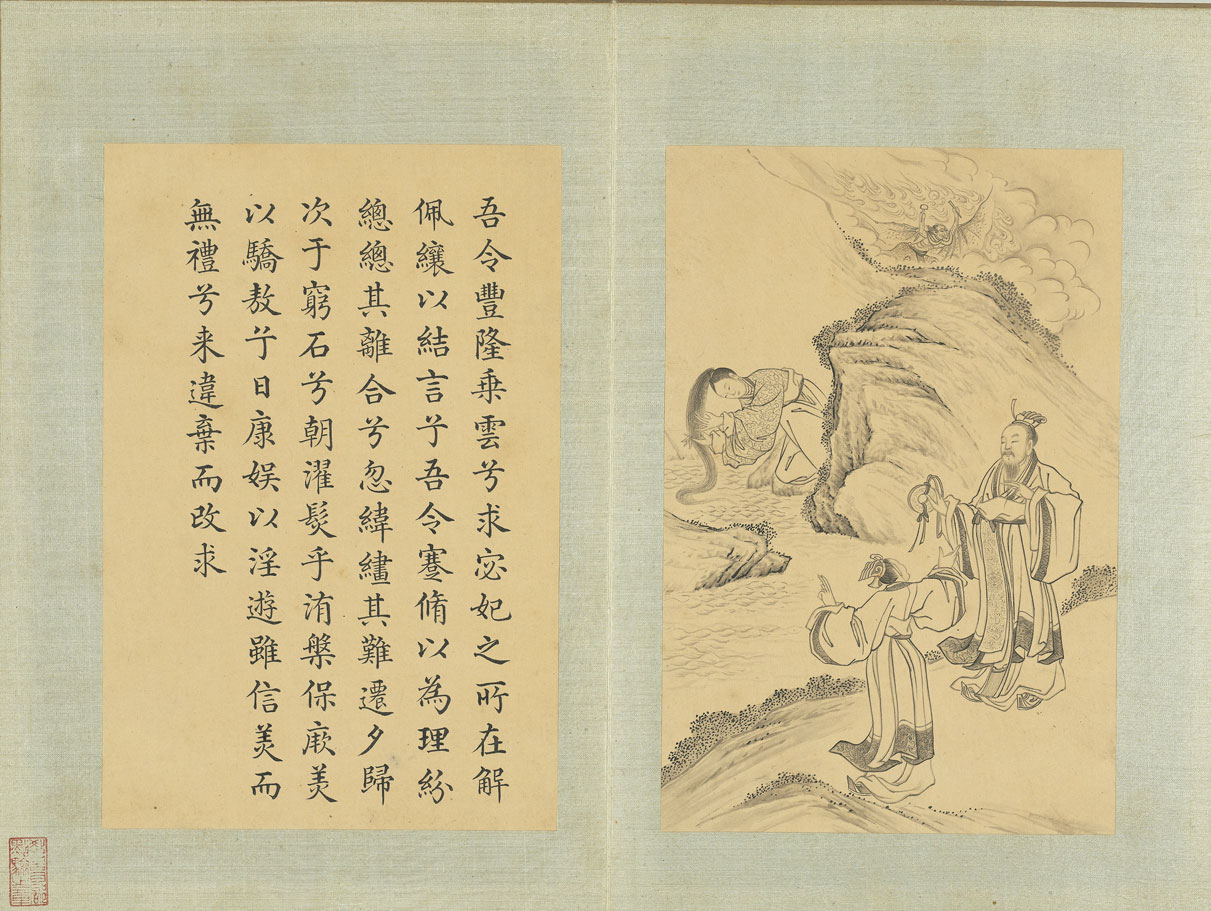 吾令豐隆乗雲兮求宓妃之所在解
佩纕以結言兮吾令蹇脩以為理紛
總總其離合兮忽緯繣其難遷夕歸
次于窮石兮朝濯髮乎洧槃保厥美
以驕敖兮日康娱以淫遊雖信美而
無禮兮来違棄而改求